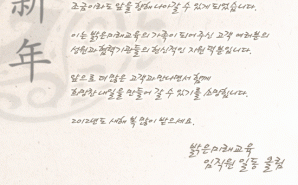 新
年
조금이라도 앞을 향해 나아갈 수 있게 되었습니다.
이는 밝은미래교육의 가족이 되어주신 고객 여러분의
성원과 협력기관들의 헌신적인 지원 덕분입니다.
앞으로 더 많은 고객과 만나면서 함께
희망찬 내일을 만들어 갈 수 있기를 소망합니다.
2012년도 새해 복 많이 받으세요.
밝은미래교육
임직원 일동 올림